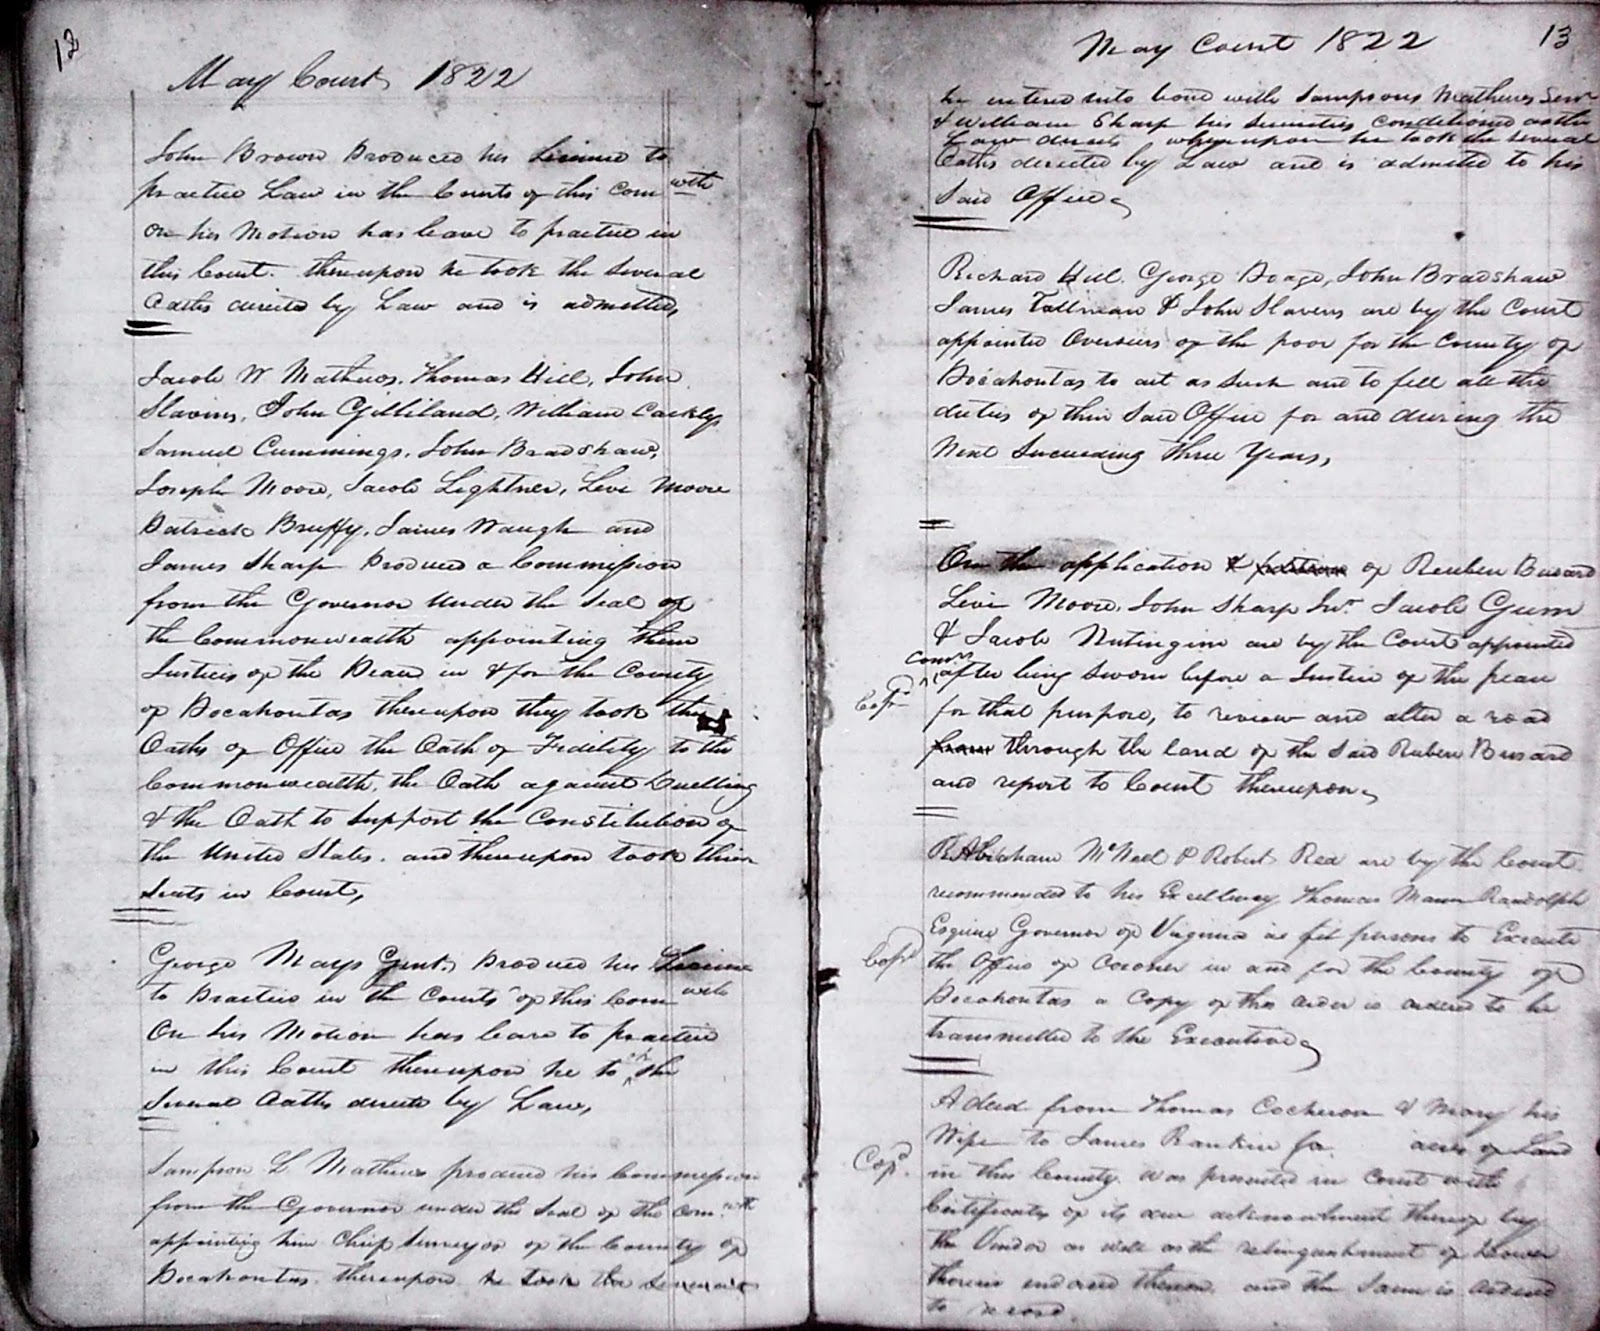 12
May Court 1822
John Brown Produced his License to
practice Law in the Courts of this Com wth
On his Motion has leave to practice in
this Court. thereupon he took the Several
Oaths directed by Law and is admitted,
Jacob W Mathews, Thomas Hill, John
Slavins, John Gilliland, William Cackley
Samuel Cummings, John Bradshaw,
Joseph Moore, Jacob Lightner, Levi Moore
Patrick Bruffy, James Waugh and
James Sharp Produced a Commission
from the Governor under the Seal of
the Commonwealth appointing them
Justices of the Peace in & for the County
of Pocahontas thereupon they took the
Oaths of Office the Oath of Fidelity to the
Commonwealth, the Oath against Duelling
& the Oath to support the Constitution of
the United States. and thereupon took their
Seats in Court,
George Mays Gent. Produced his License
to Practice in the Courts of this Com wth
On his Motion has leave to practice
in this Court thereupon he to ok the
Several Oaths directed by Law,
Sampson L Mathews produced his Commission
from the Governor under the Seal of the Com.wth
appointing him Chief Surveyor of the County of
Pocahontas. thereupon he took the
May Court 1822
13
he entered into bond with Sampson Mathews Senr
& William Sharp his Securities conditioned as the
Law directs whereupon he took the several
Oaths directed by Law and is admitted to his
Said Office,
Richard Hill. George Poage, John Bradshaw
James Tallman & John Slavens are by the Court
appointed Overseers of the poor for the County of
Pocahontas to act as Such and to fill all the
duties of their Said Office for and during the
Next Succeeding three Years,
On the application & petition of Reuben Busard
Levi Moore, John Sharp Jnr. Jacob Gum
& Jacob are by the Court appointed
Comrs
after being Sworn before a Justice of the peace
Copd
for that purpose, to review and alter a road
from through the land of the Said Ruben Busard
and report to Court thereupon,
Abraham McNeel & Robert Rea are by the Court
recommended to his Excellency Thomas Mann Randolph
Esquire Governor of Virginia as fit persons to Execute
Copd
the Office of Coroner in and for the County of
Pocahontas a Copy of this order is ordered to be
transmitted to the Executive,
A deed from Thomas Cocheron & Mary his
Wife to James Rankin for acres of Land
Copd.
in this County was presented in Court with
Certificates of its due acknowledgment thereof by
the Vendor as well as the relinquishment of Dower
thereon and the Same is ordered
to record